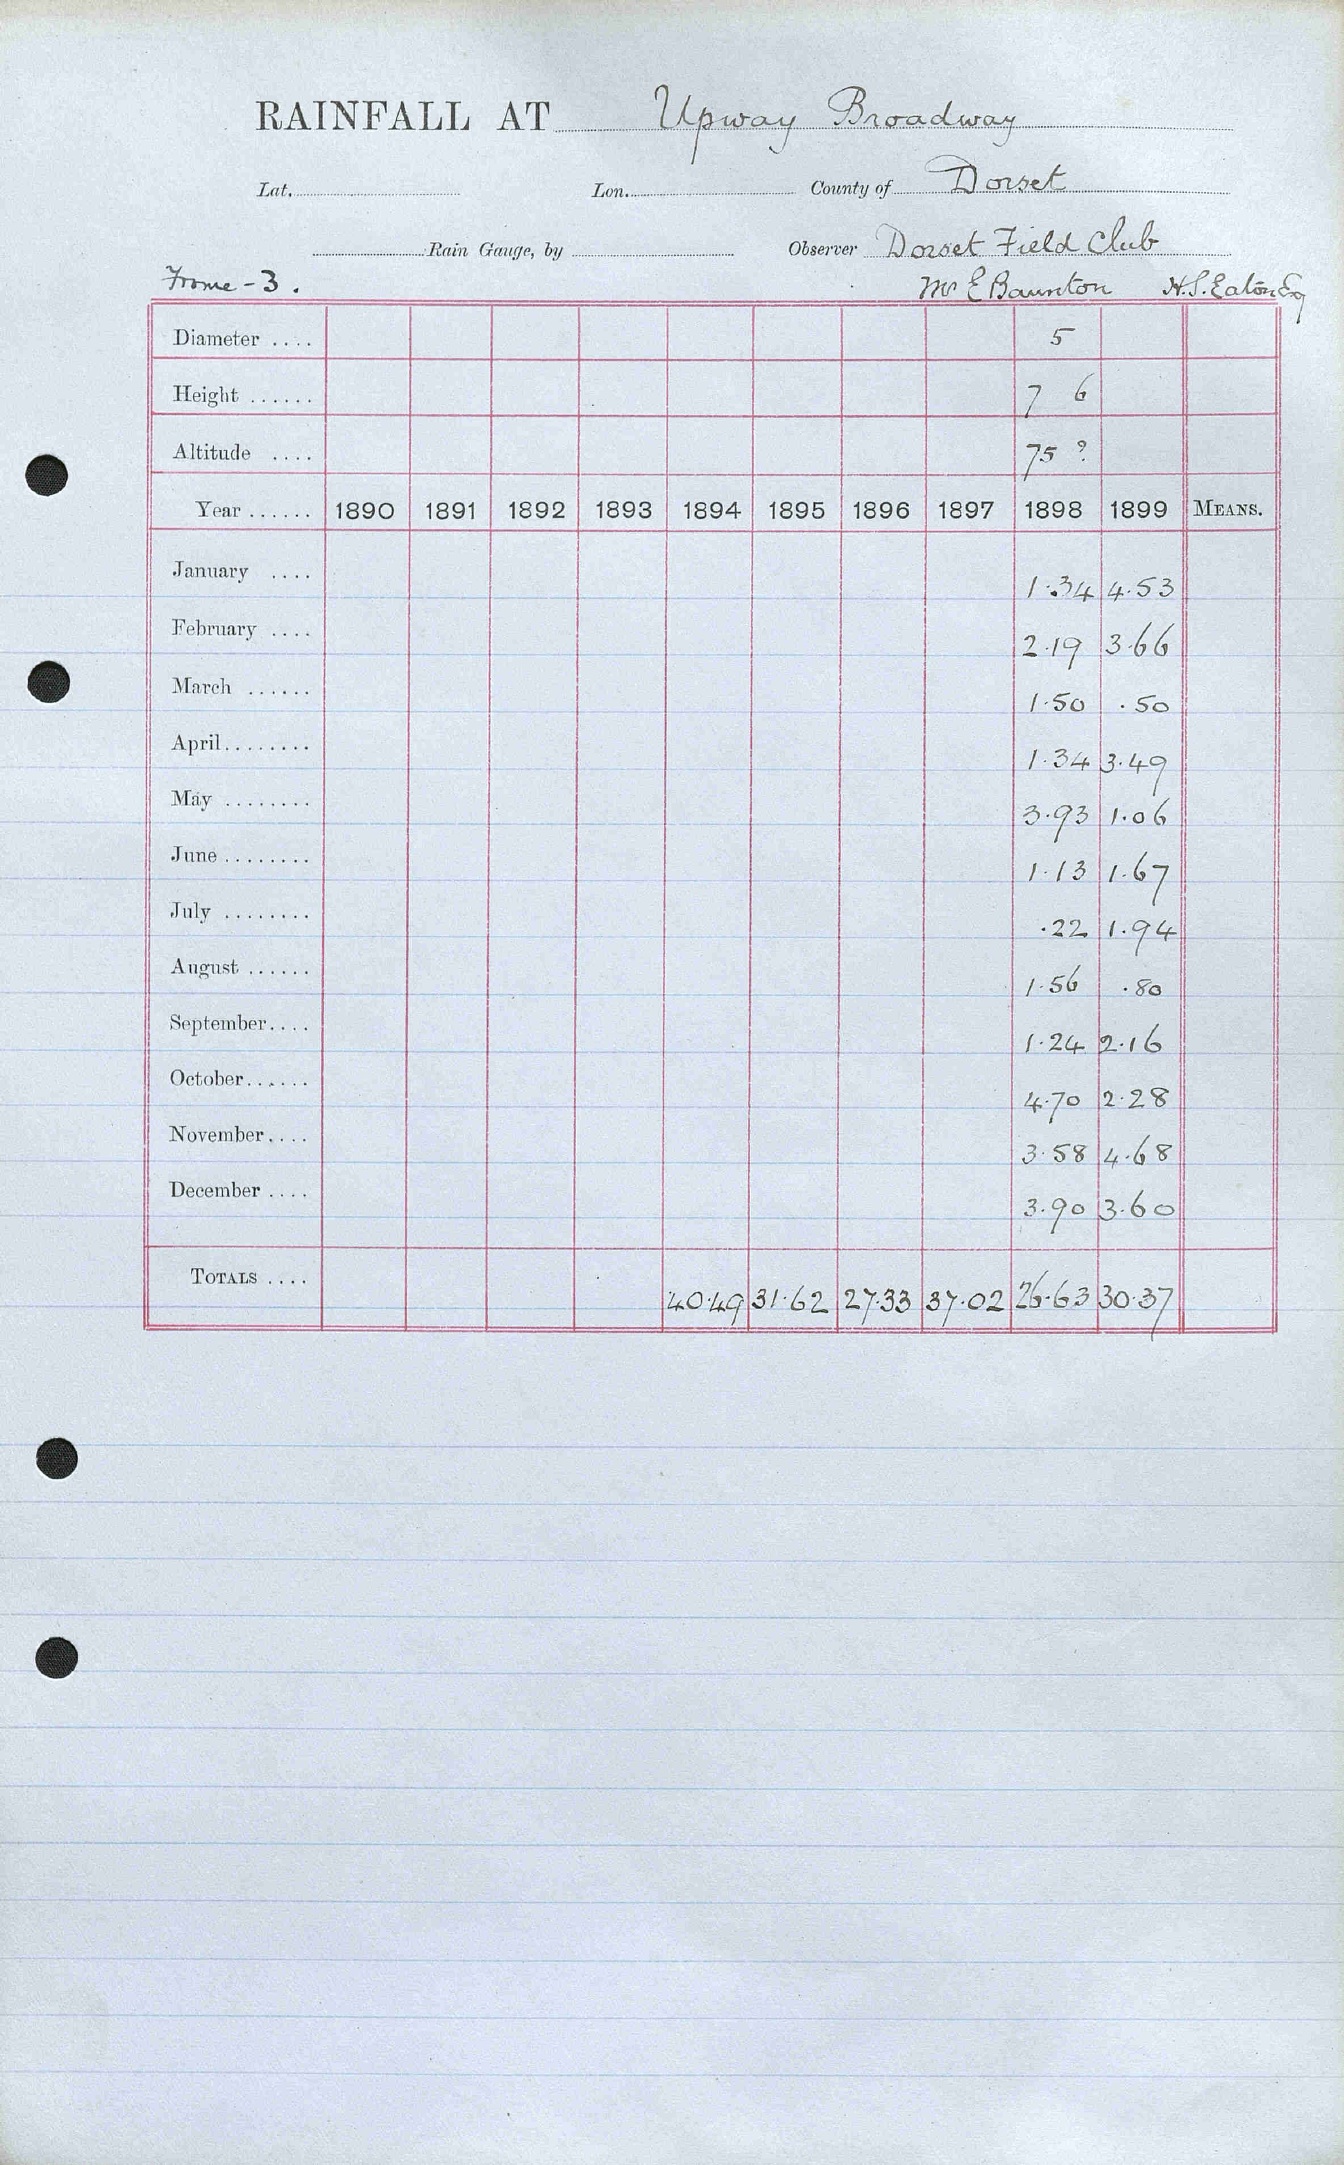 RAINFALL AT Upway Broadway
Lat. Lon. County of Dorset
Rain Gauge, by Observer Dorset Field Club
Frome - 3. Mr E Baunton H.S. Eaton Esq
Diameter .... 5
Height ...... 7 6
Altitude .... 75 ?
Year ...... 1890 1891 1892 1893 1894 1895 1896 1897 1898 1899 MEANS.
January .... 1.34 4.53
February .... 2.19 3.66
March ...... 1.50 .50
April........ 1.34 3.49
May ........ 3.93 1.06
June ........ 1.13 1.67
July ........ .22 1.94
August ...... 1.56 .80
September.... 1.24 2.16
October...... 4.70 2.28
November.... 3.58 4.68
December .... 3.90 3.60
TOTALS .... 40.49 31.62 27.33 37.02 26.63 30.37